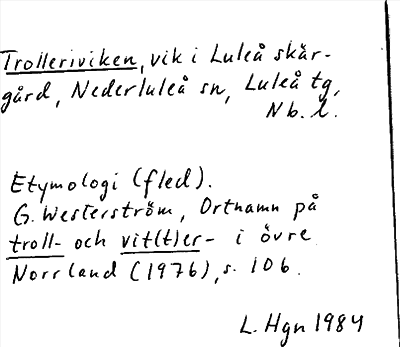 Trolleriviken, vik i Luleå skär-
gård, Nederluleå sn, Luleå tg,
Nb. l.
Etymologi (fled).
G. Westerström, Ortnamn på
troll- och vit(t)er- i övre
Norrland (1976), s. 106.
L. Hgn 1984